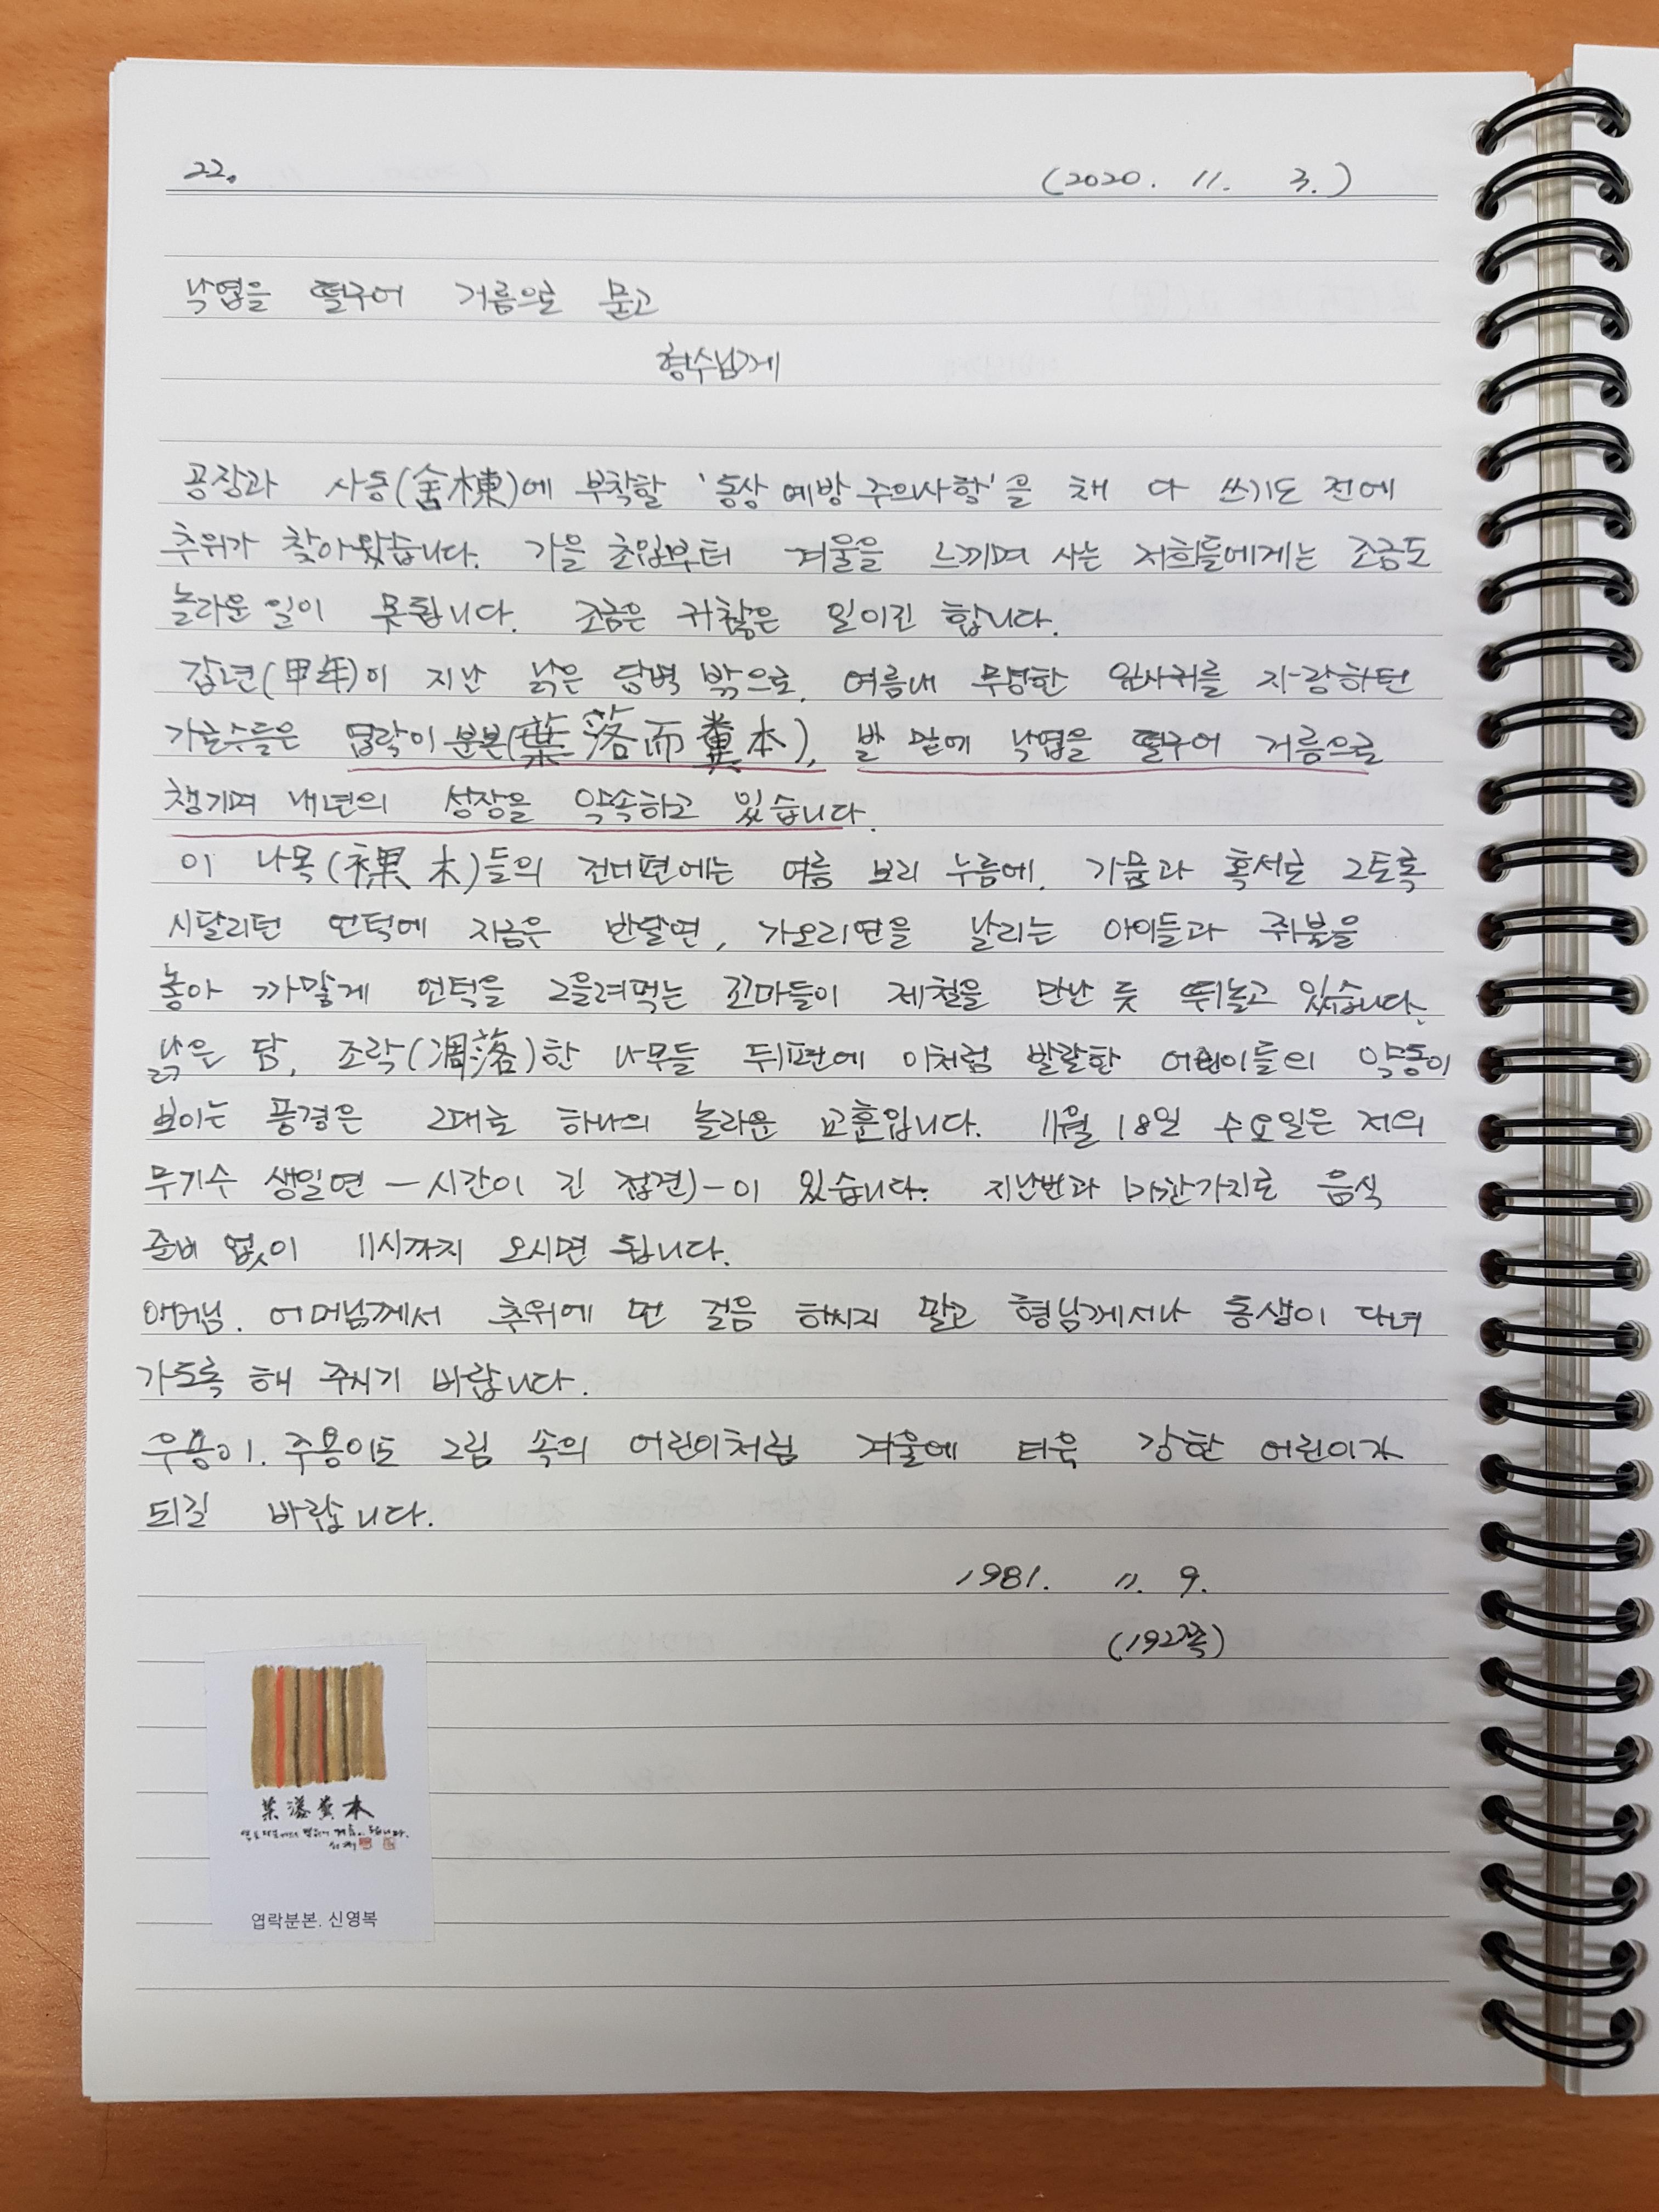 22.
(2020. 11. 3.)
낙엽을 떨구어 거름으로 묻고
형수님께
공장과 사동(舍棟)에 부착할 '동상 예방 주의사항'을 채 다 쓰기도 전에
추위가 찾아왔습니다. 가을 초입부터 겨울을 느끼며 사는 저희들에게는 조금도
놀라운 일이 못됩니다. 조금은 귀찮은 일이긴 합니다.
갑년(甲年)이 지난 낡은 담벽 밖으로, 여름내 무성한 잎사귀를 자랑하던
가로수들은 엽락이분본(葉落而糞本), 발 밑에 낙엽을 떨구어 거름으로
챙기며 내년의 성장을 약속하고 있습니다.
이 나목(裸木)들의 건너편에는 여름 보리 누름에, 가뭄과 혹서로 그토록
시달리던 언덕에 지금은 반달연, 가오리연을 날리는 아이들과 쥐불을
놓아 까맣게 언덕을 그을려먹는 꼬마들이 제철을 만난 듯 뛰놀고 있습니다.
낡은 담, 조락(凋落)한 나무들 뒤편에 이처럼 발랄한 어린이들의 약동이
보이는 풍경은 그대로 하나의 놀라운 교훈입니다. 11월 18일 수요일은 저의
무기수 생일연 - 시간이 긴 접견) - 이 있습니다. 지난번과 마찬가지로 음식
준비 없이 11시까지 오시면 됩니다.
아버님. 어머님께서 추위에 먼 걸음 하시지 말고 형님께서나 동생이 다녀
가도록 해 주시기 바랍니다.
우용이. 주용이도 그림 속의 어린이처럼 겨울에 더욱 강한 어린이가
되길 바랍니다.
1981. 11. 9.
(192쪽)
葉落糞本
엽락분본. 신영복